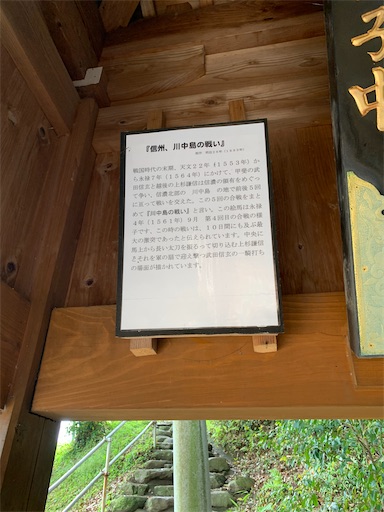 『信州、川中島の戦い』
戦国時代の末期、天文22年(1553年)か
ら永禄7年(1564年)にかけて、甲斐の武
田信玄と越後の上杉謙信は信濃の領有をめぐっ
て争い、信濃北部の 川中島 の地で前後5回
に亘って戦いを交えた。この5回の合戦をまと
めて『川中島の戦い』と言い、この絵馬は永禄
4年(1561年)9月 第4回目の合戦の様
子です。この時の戦いは、10日間にも及ぶ最
大の激突であったと伝えられています。中央に
馬上から長い太刀を振るって切り込む上杉謙信
とそれを軍の扇で迎え撃つ武田信玄の一騎打ち
の場面が描かれています。
中